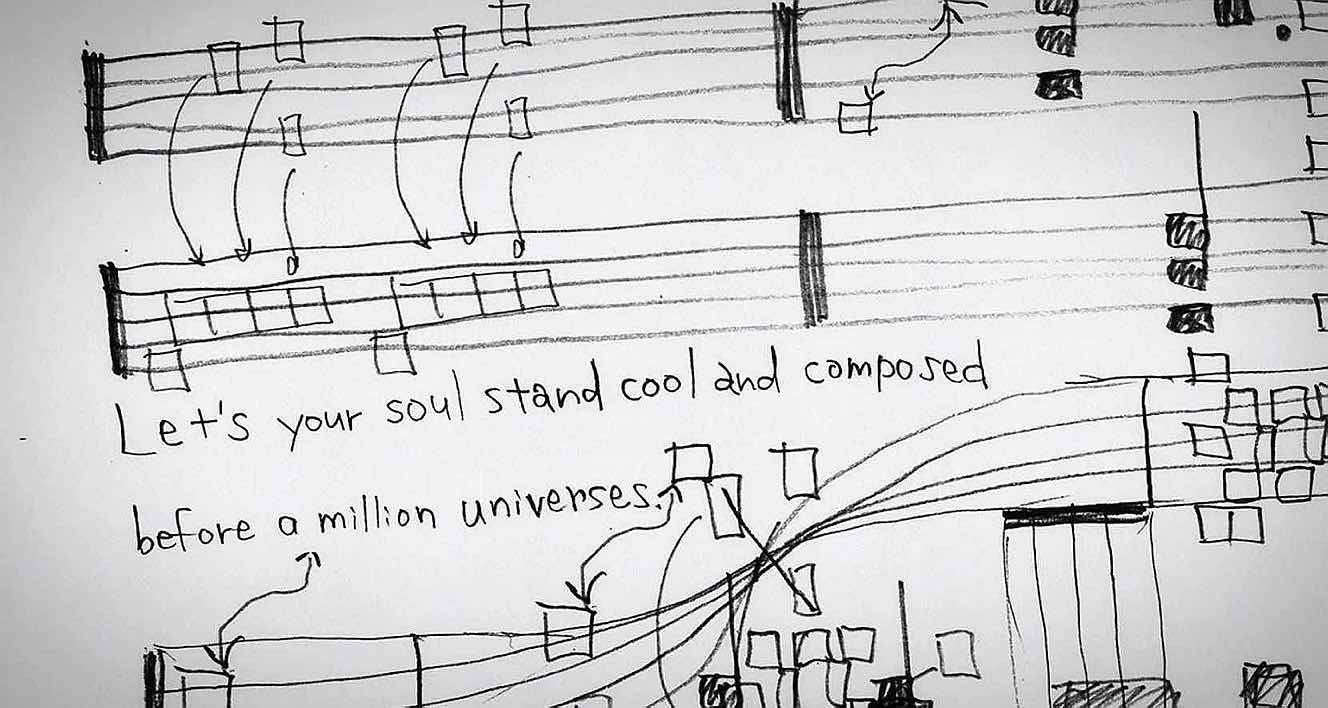 Let's your soul stand cool and composed
before a million universes.